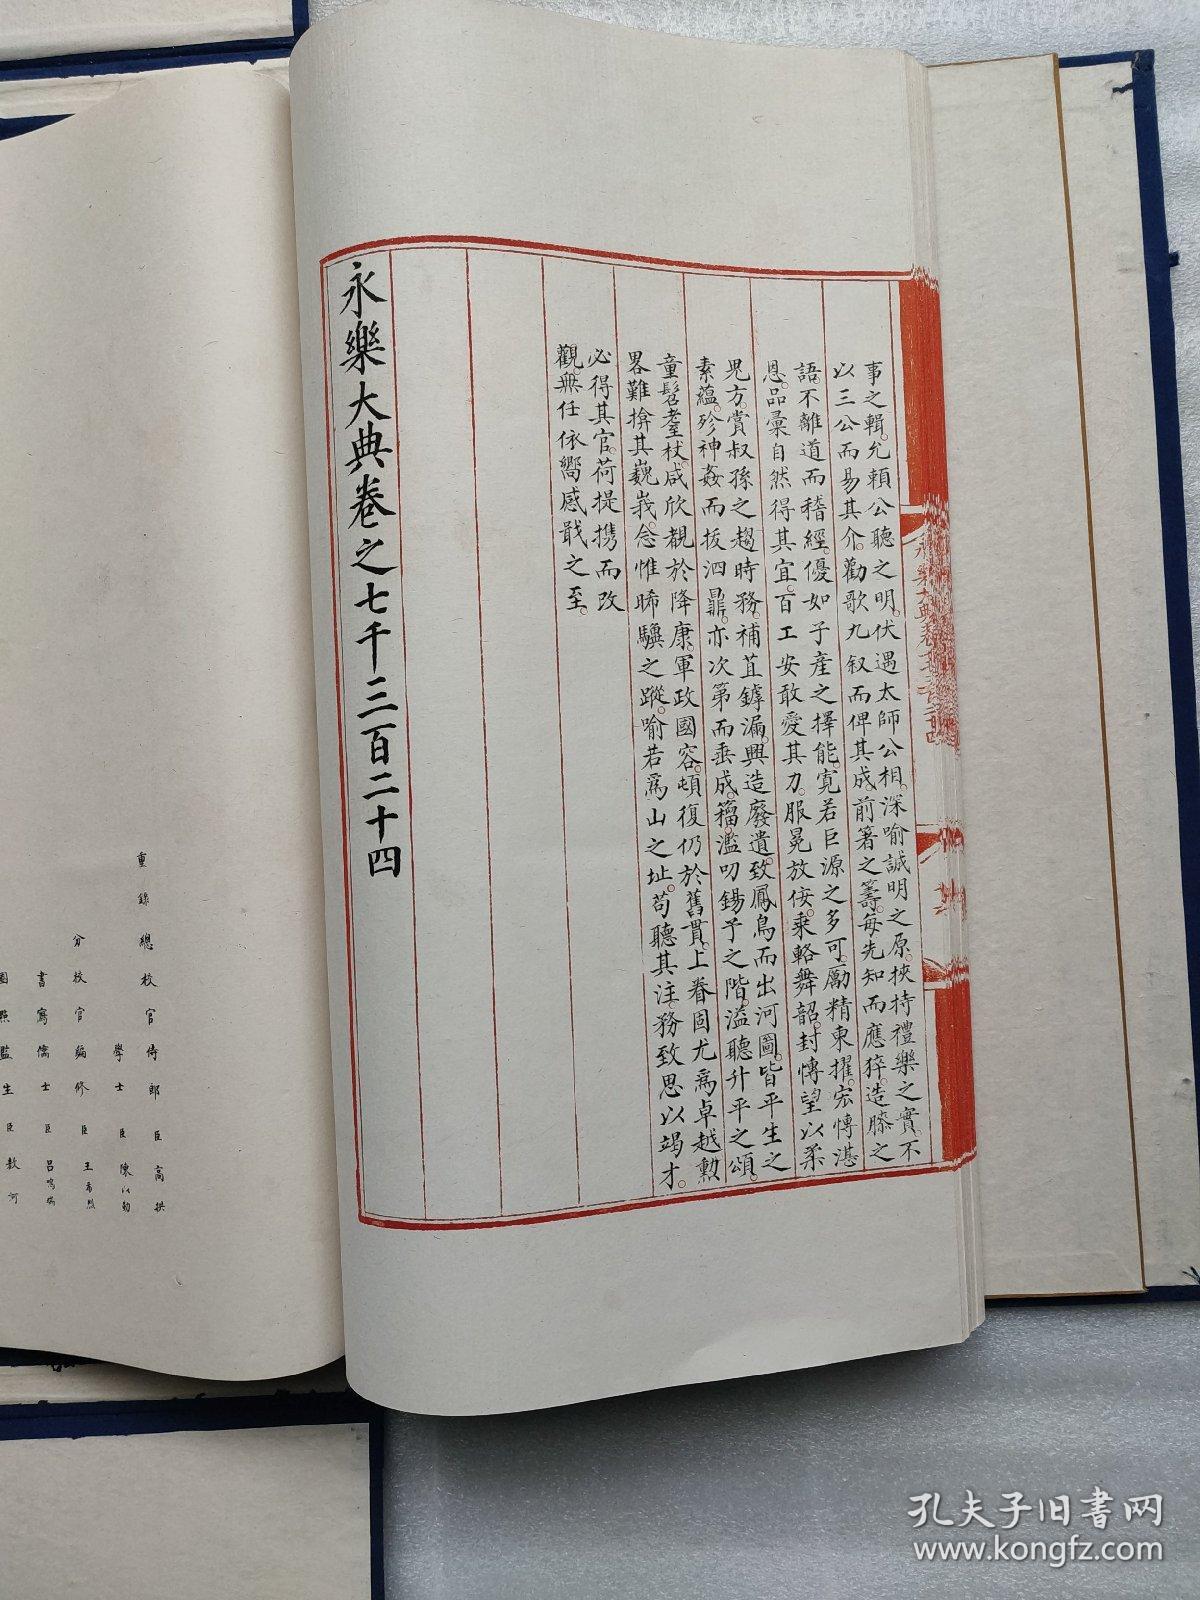 事之輯。允賴公聽之明。伏遇太師公相。深喻誠明之原。挾持禮樂之實。不
以三公而易其介。勸歌九叙而俾其成。前箸之籌。每先知而應猝。造膝之
語。不離道而稽經。優如子產之擇能。寬若巨源之多可。勵精東擢。宏愽湛
恩。品彙自然得其宜。百工安敢愛其力。服冕放佞。乘輅舞韶。封愽望以柔
鬼方。賞叔孫之趨時務。補苴鏬漏。興造廢遺。致鳳鳥而出河圖。皆平生之
素蘊。殄神姦而拔泗鼎。亦次第而垂成。籀濫叨錫予之階。溢聽升平之頌。
童髫耋杖。咸欣覩於降康。軍政國容。頓復仍於舊貫。上眷固尤爲卓越。勲
畧難揜其巍峩。念惟晞驥之蹤。喻若爲山之址。苟聽其注。務致思以竭才。
必得其官。荷提携而改
觀。無任依嚮感戢之至。
永樂大典卷之七千三百二十四
重錄總校官侍郎臣高拱
學士臣陳以勤
分校官編修臣王希烈
書寫儒士臣呂鳴瑞
圈點監生臣敖河
孔夫子旧书网
www.kongfz.com